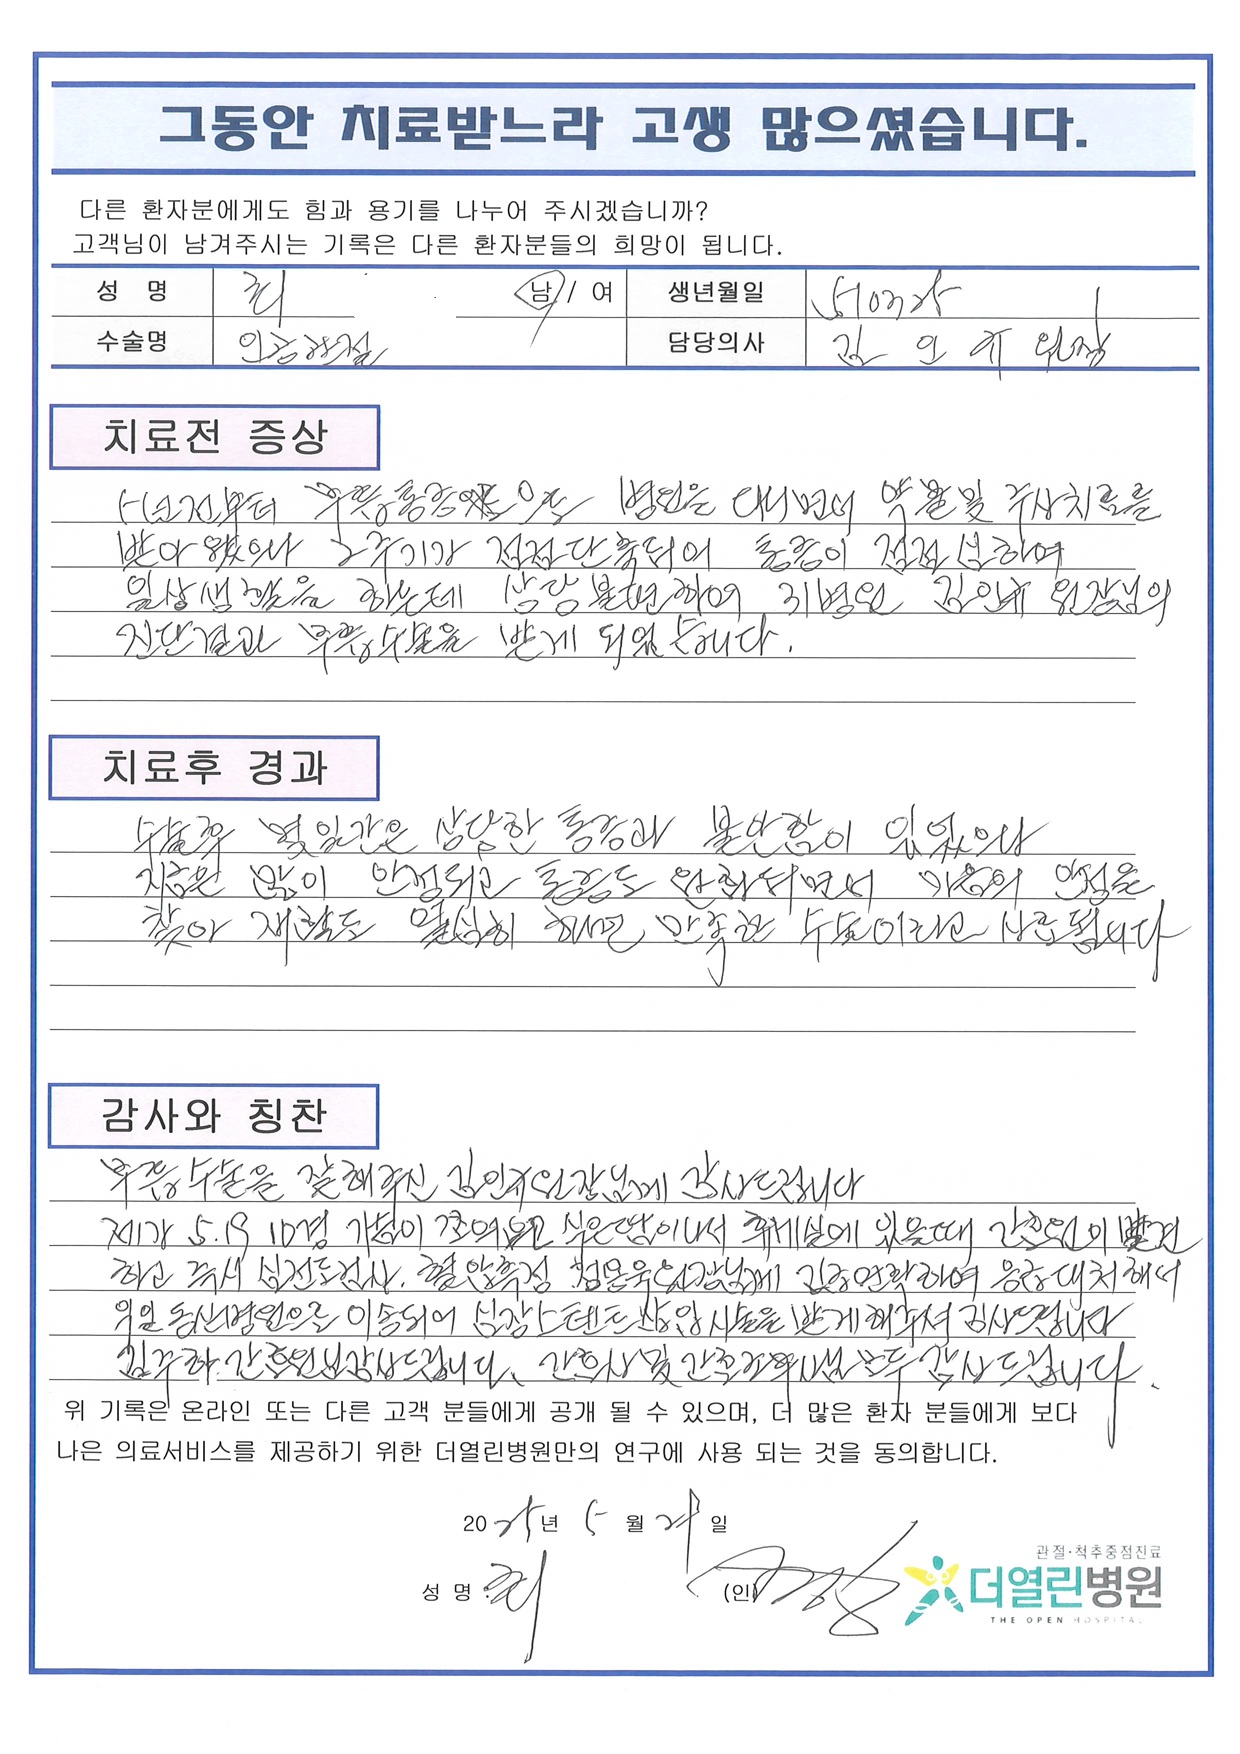 그동안 치료받느라 고생 많으셨습니다.
다른 환자분에게도 힘과 용기를 나누어 주시겠습니까?
고객님이 남겨주시는 기록은 다른 환자분들의 희망이 됩니다.
성 명 최 남 / 여 생년월일
수술명 담당의사 김 인 규 원장
치료전 증상
5년전부터 무릎통증 병원을 다니면서 약물및 주사치료를
받아 왔으나 그 주기가 점점단축되어 통증이 점점 심하여
일상생활을 하는데 상당 불편하여 귀병원 김인규 원장님의
진단결과 무릎수술을 받게 되었습니다.
치료후 경과
수술후 몇일간은 상당한 통증과 불안함이 있었으나
지금은 많이 안정되고 통증도 완화되면서 마음의 안정을
찾아 재활도 열심히 하며 만족한 수술이라고 사료됩니다
감사와 칭찬
무릎수술을 잘해주신 김인규원장님께 감사드립니다
제가 5.19 10경 가슴이 식은땀이나서 휴게실에 있을때 간호원이 발견
하고 즉시 심전도검사. 혈압측정 원장님께 긴급연락하여 응급대처해서
동산병원으로 이송되어 심장스텐트삽입시술을 받게해주셔 감사드립니다
김주화 간호원님감사드립니다. 간호사 및 모두 감사드립니다.
위 기록은 온라인 또는 다른 고객 분들에게 공개 될 수 있으며, 더 많은 환자 분들에게 보다
나은 의료서비스를 제공하기 위한 더열린병원만의 연구에 사용 되는 것을 동의합니다.
2025년 5월 21일
성 명 : 최 (인)
관절·척추중점진료
더열린병원
THE OPEN HOSPITAL